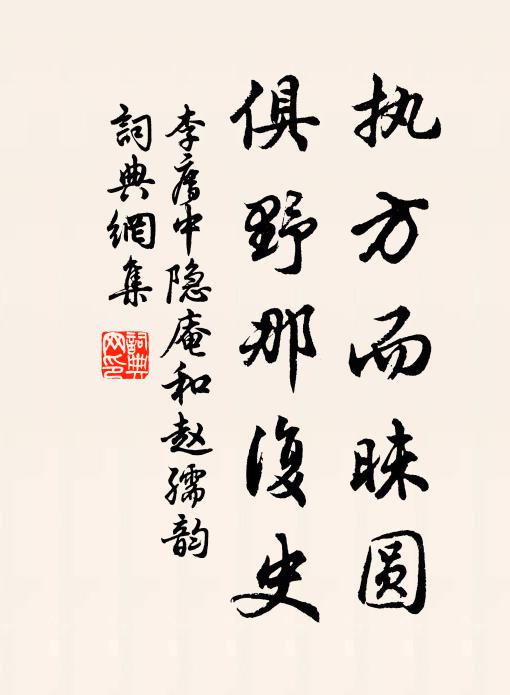 执方而昧圆
俱野那復史
李膺中隐庵和赵孺韵
詞典網集
詞典网印